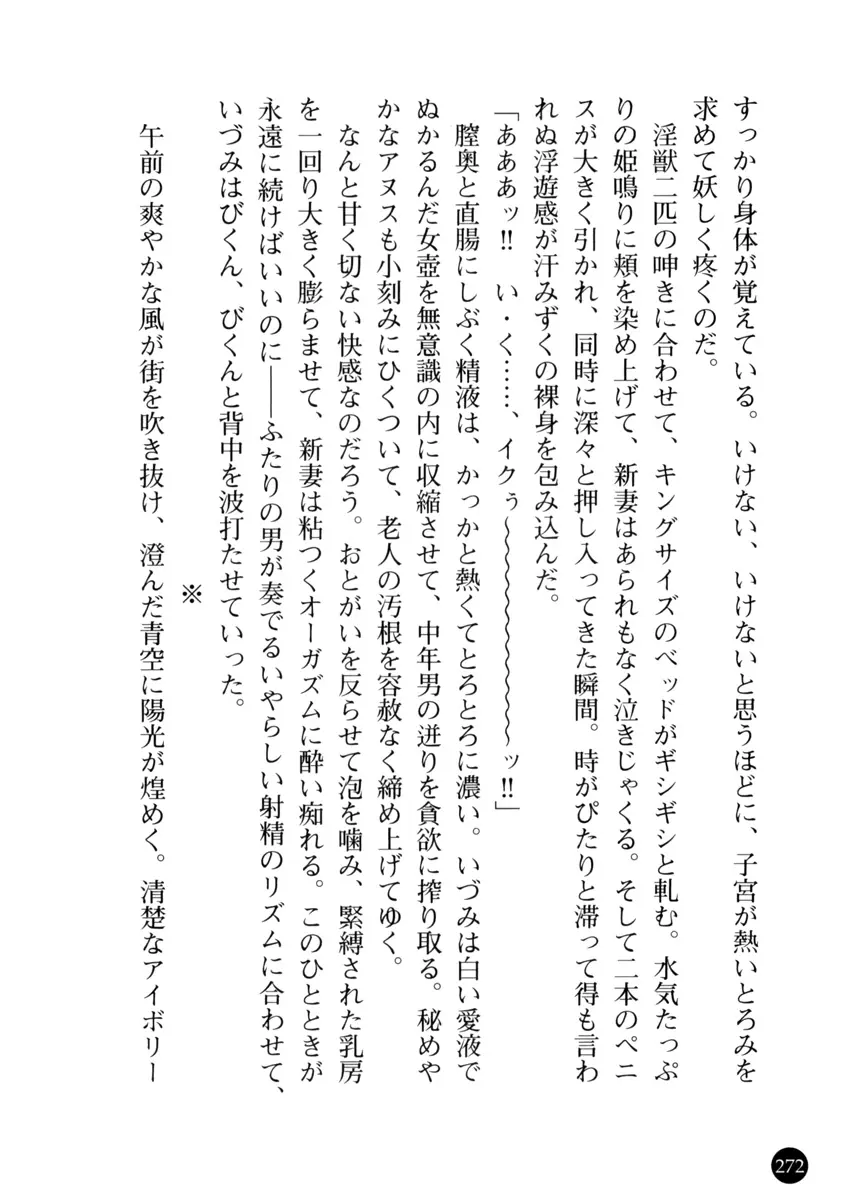 すっかり身体が覚えている。いけない、いけないと思うほどに、子宮が熱いとろみを
求めて妖しく疼くのだ。
淫獣二匹の呻きに合わせて、キングサイズのベッドがギシギシと軋む。水気たっぷ
りの姫鳴りに頬を染め上げて、新妻はあられもなく泣きじゃくる。そして二本のペニ
スが大きく引かれ、同時に深々と押し入ってきた瞬間。時がぴたりと滞って得も言わ
れぬ浮遊感が汗みずくの裸身を包み込んだ。
「あああッ!! い・く……、イクぅ〜〜〜〜〜〜〜〜〜ッ!!」
膣奥と直腸にしぶく精液は、かっかと熱くてとろとろに濃い。いづみは白い愛液で
ぬかるんだ女壺を無意識の内に収縮させて、中年男の迸りを貪欲に搾り取る。秘めや
かなアヌスも小刻みにひくついて、老人の汚根を容赦なく締め上げてゆく。
なんと甘く切ない快感なのだろう。おとがいを反らせて泡を噛み、緊縛された乳房
を一回り大きく膨らませて、新妻は粘つくオーガズムに酔い痴れる。このひとときが
永遠に続けばいいのに――ふたりの男が奏でるいやらしい射精のリズムに合わせて、
いづみはびくん、びくんと背中を波打たせていった。
※
午前の爽やかな風が街を吹き抜け、澄んだ青空に陽光が煌めく。清楚なアイボリー
272